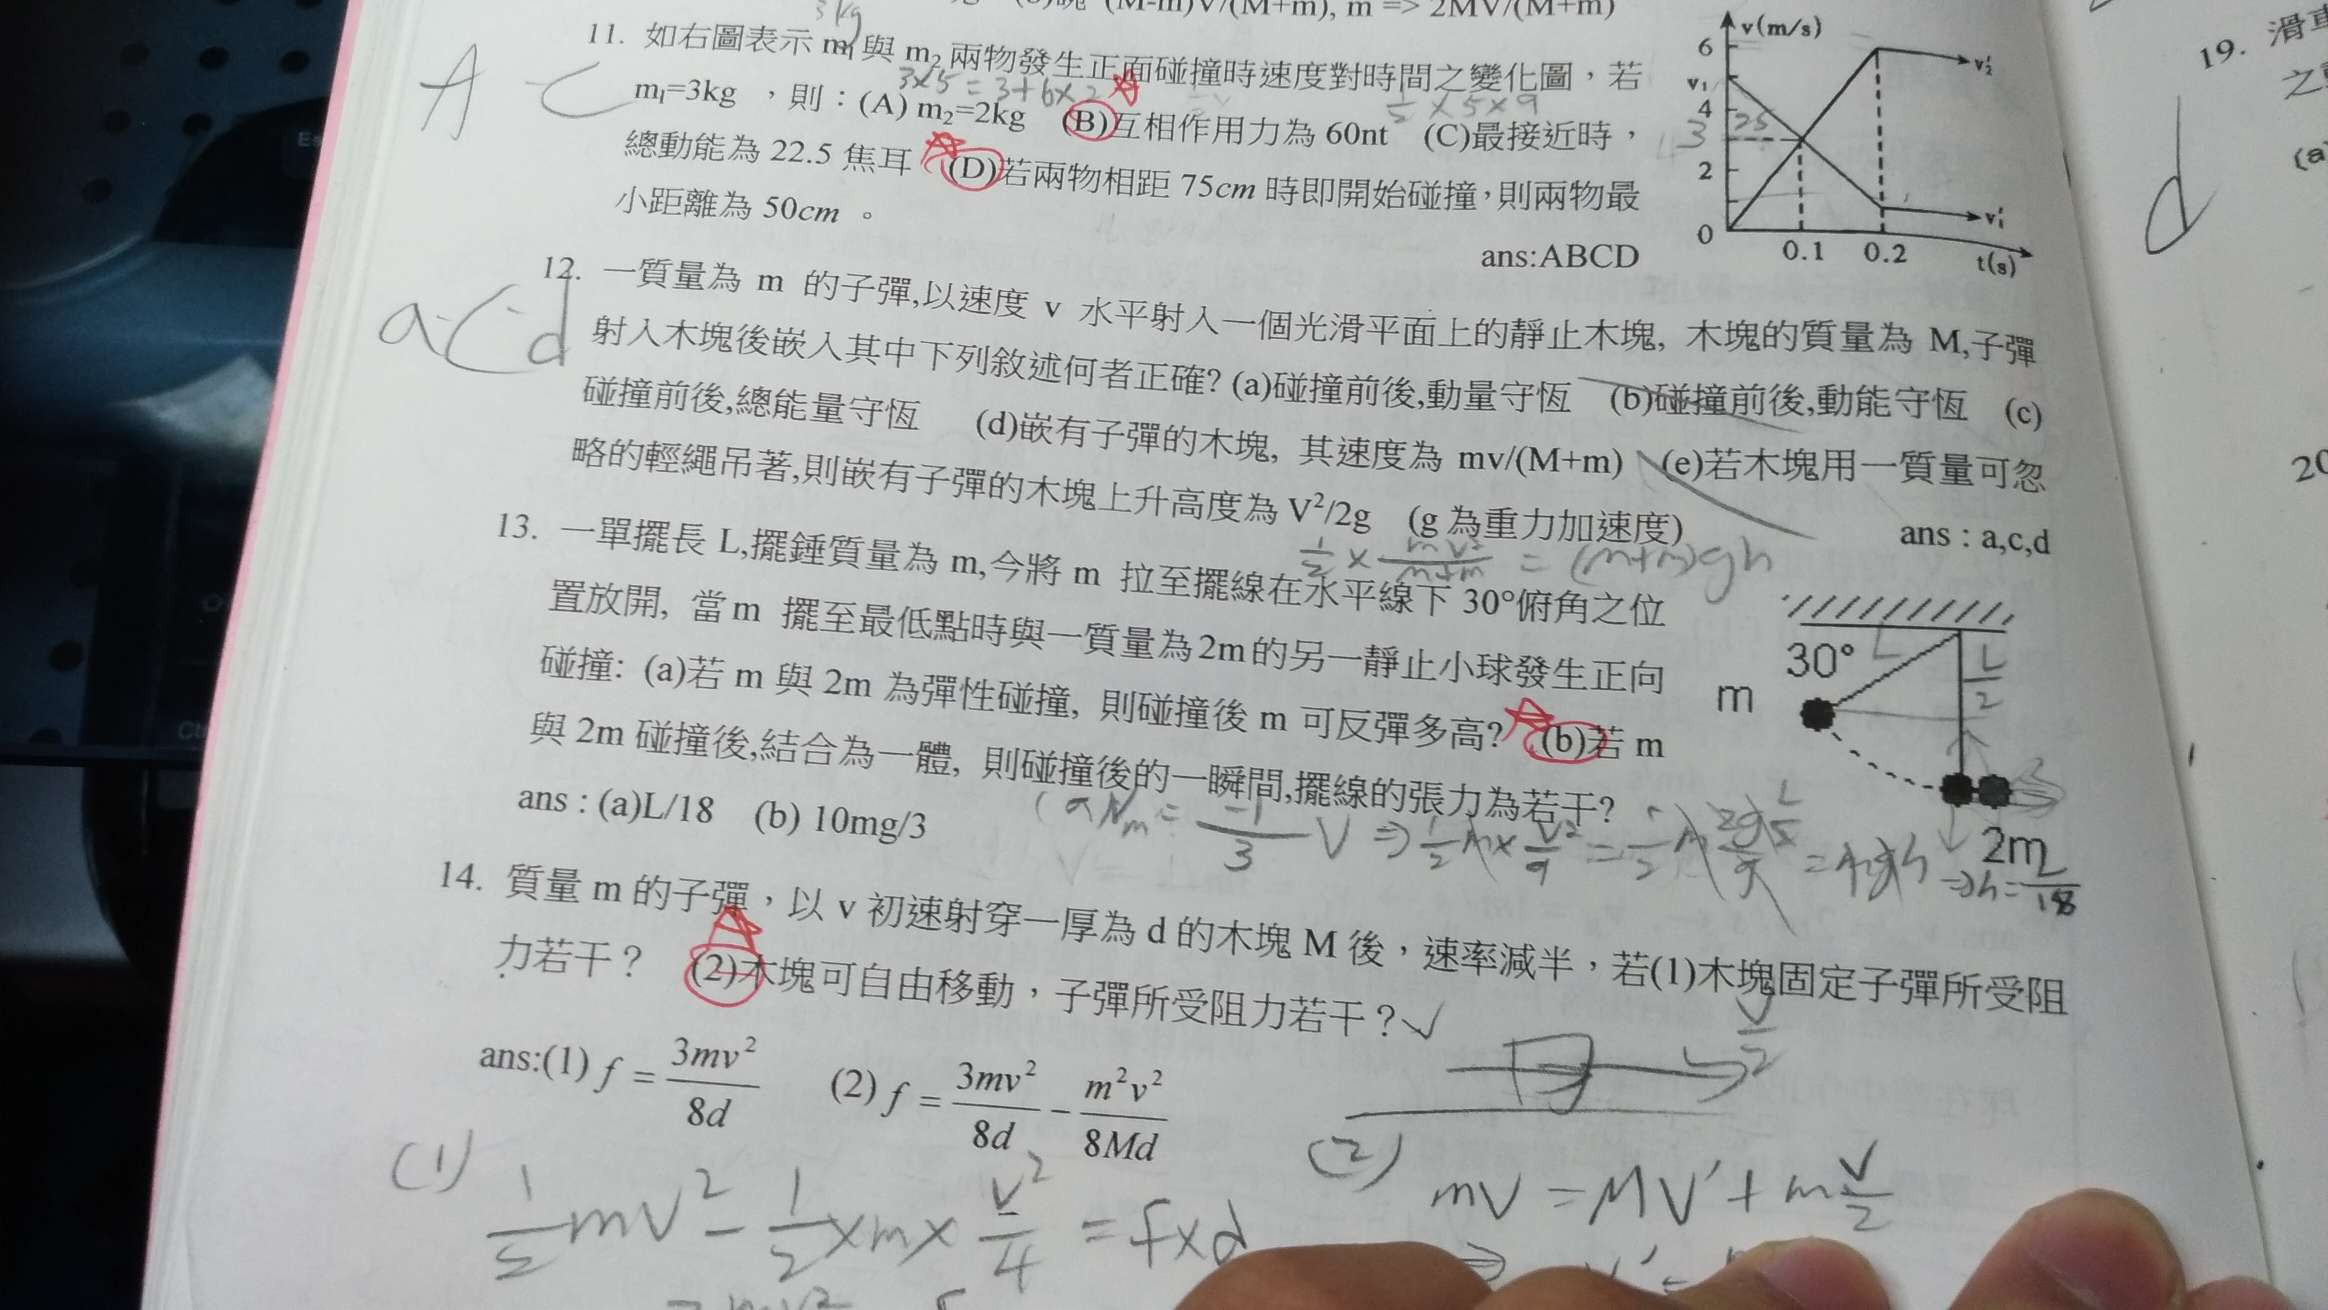 (M-m)V/(M+m), m => 2MV/(M+m)
3kg
11. 如右圖表示 m₁與 m₂ 兩物發生正面碰撞時速度對時間之變化圖，若
3×5=3+6×2
m₁=3kg ，則：(A) m₂=2kg (B)互相作用力為 60nt (C)最接近時，
½×5×9
總動能為 22.5 焦耳 (D)若兩物相距 75cm 時即開始碰撞，則兩物最
小距離為 50cm 。
ans:ABCD
A C
v(m/s)
6
v₁
4
3
2
0
0.1 0.2 t(s)
v₂'
v₁'
12. 一質量為 m 的子彈,以速度 v 水平射入一個光滑平面上的靜止木塊, 木塊的質量為 M,子彈
射入木塊後嵌入其中下列敘述何者正確? (a)碰撞前後,動量守恆 (b)碰撞前後,動能守恆 (c)
碰撞前後,總能量守恆 (d)嵌有子彈的木塊, 其速度為 mv/(M+m) (e)若木塊用一質量可忽
略的輕繩吊著,則嵌有子彈的木塊上升高度為 V²/2g (g 為重力加速度)
ans : a,c,d
a c d
13. 一單擺長 L,擺錘質量為 m,今將 m 拉至擺線在水平線下 30°俯角之位
置放開, 當 m 擺至最低點時與一質量為 2m 的另一靜止小球發生正向
碰撞: (a)若 m 與 2m 為彈性碰撞, 則碰撞後 m 可反彈多高? (b)若 m
與 2m 碰撞後,結合為一體, 則碰撞後的一瞬間,擺線的張力為若干?
ans : (a)L/18 (b) 10mg/3
30°
L
L/2
m
2m
14. 質量 m 的子彈，以 v 初速射穿一厚為 d 的木塊 M 後，速率減半，若(1)木塊固定子彈所受阻
力若干？ (2)木塊可自由移動，子彈所受阻力若干？
ans:(1) f = 3mv²/8d (2) f = 3mv²/8d − m²v²/8Md
V/2
(1)
½mV² − ½×m×V²/4 = f×d
(2)
mV = MV' + mV/2
19. 滑車
(a)
d
20